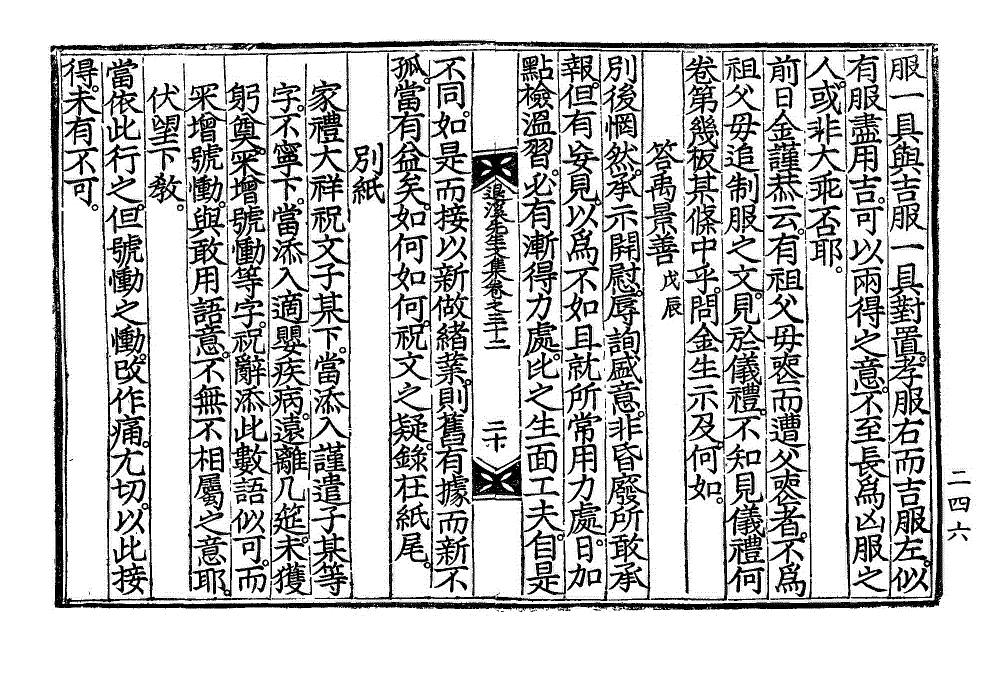 服一具與吉服一具對置。孝服右而吉服左。似
有服盡用吉。可以兩得之意。不至長爲凶服之
人。或非大乖否耶。
前日金謹恭云。有祖父母喪而遭父喪者。不爲
祖父母追制服之文。見於儀禮。不知見儀禮何
卷第幾板某條中乎。問金生示及。何如。
答禹景善 戊辰
別後惘然。承示開慰。辱詢盛意。非昏廢所敢承
報。但有妄見。以爲不如且就所常用力處。日加
點檢溫習。必有漸得力處。比之生面工夫。自是
退溪先生文集卷之三十二 二十
不同。如是而接以新做緖業。則舊有據而新不
孤。當有益矣。如何如何。祝文之疑。錄在紙尾。
別紙
家禮大祥祝文子某下。當添入謹遣子某等
字。不寧下。當添入適嬰疾病。遠離几筵。未獲
躬奠。冞增號慟等字。祝辭添此數語似可。而
冞增號慟。與敢用語意。不無不相屬之意耶。
伏望下敎。
當依此行之。但號慟之慟。改作痛。尤切。以此接
得。未有不可。
二四六